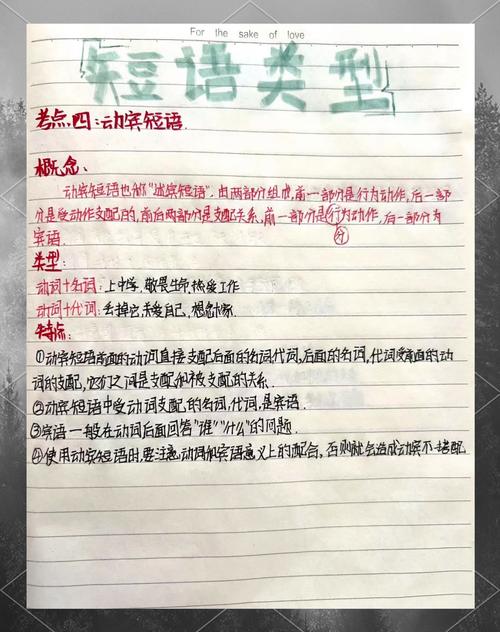 For the sake of love
短语类型
考点四:动宾短语.
概念、
动宾短语也称"述宾短语",由两部分组成,前一部分是行为动作,后一部
分是受动作支配的,前后两部分是支配关系,前一部分是行为动作,后一部分为
宾语.
类型:
动词+名词:上中学.敬畏生命,热爱工作
动词+代词:去掉它,关爱自己,想念
特点:
①动宾短语前面的动词直接支配后面的名词代词,后面的名词,代词受前面的动
词的支配,它们之间是支配和被支配的关系.
②动宾短语中受动词支配的名词,代词,是宾语.
③宾语一般在动词后面回答"谁""什么"的问题.
④使用动宾短语时,要注意动词和宾语意义上的配合,否则就会造成动宾不搭配